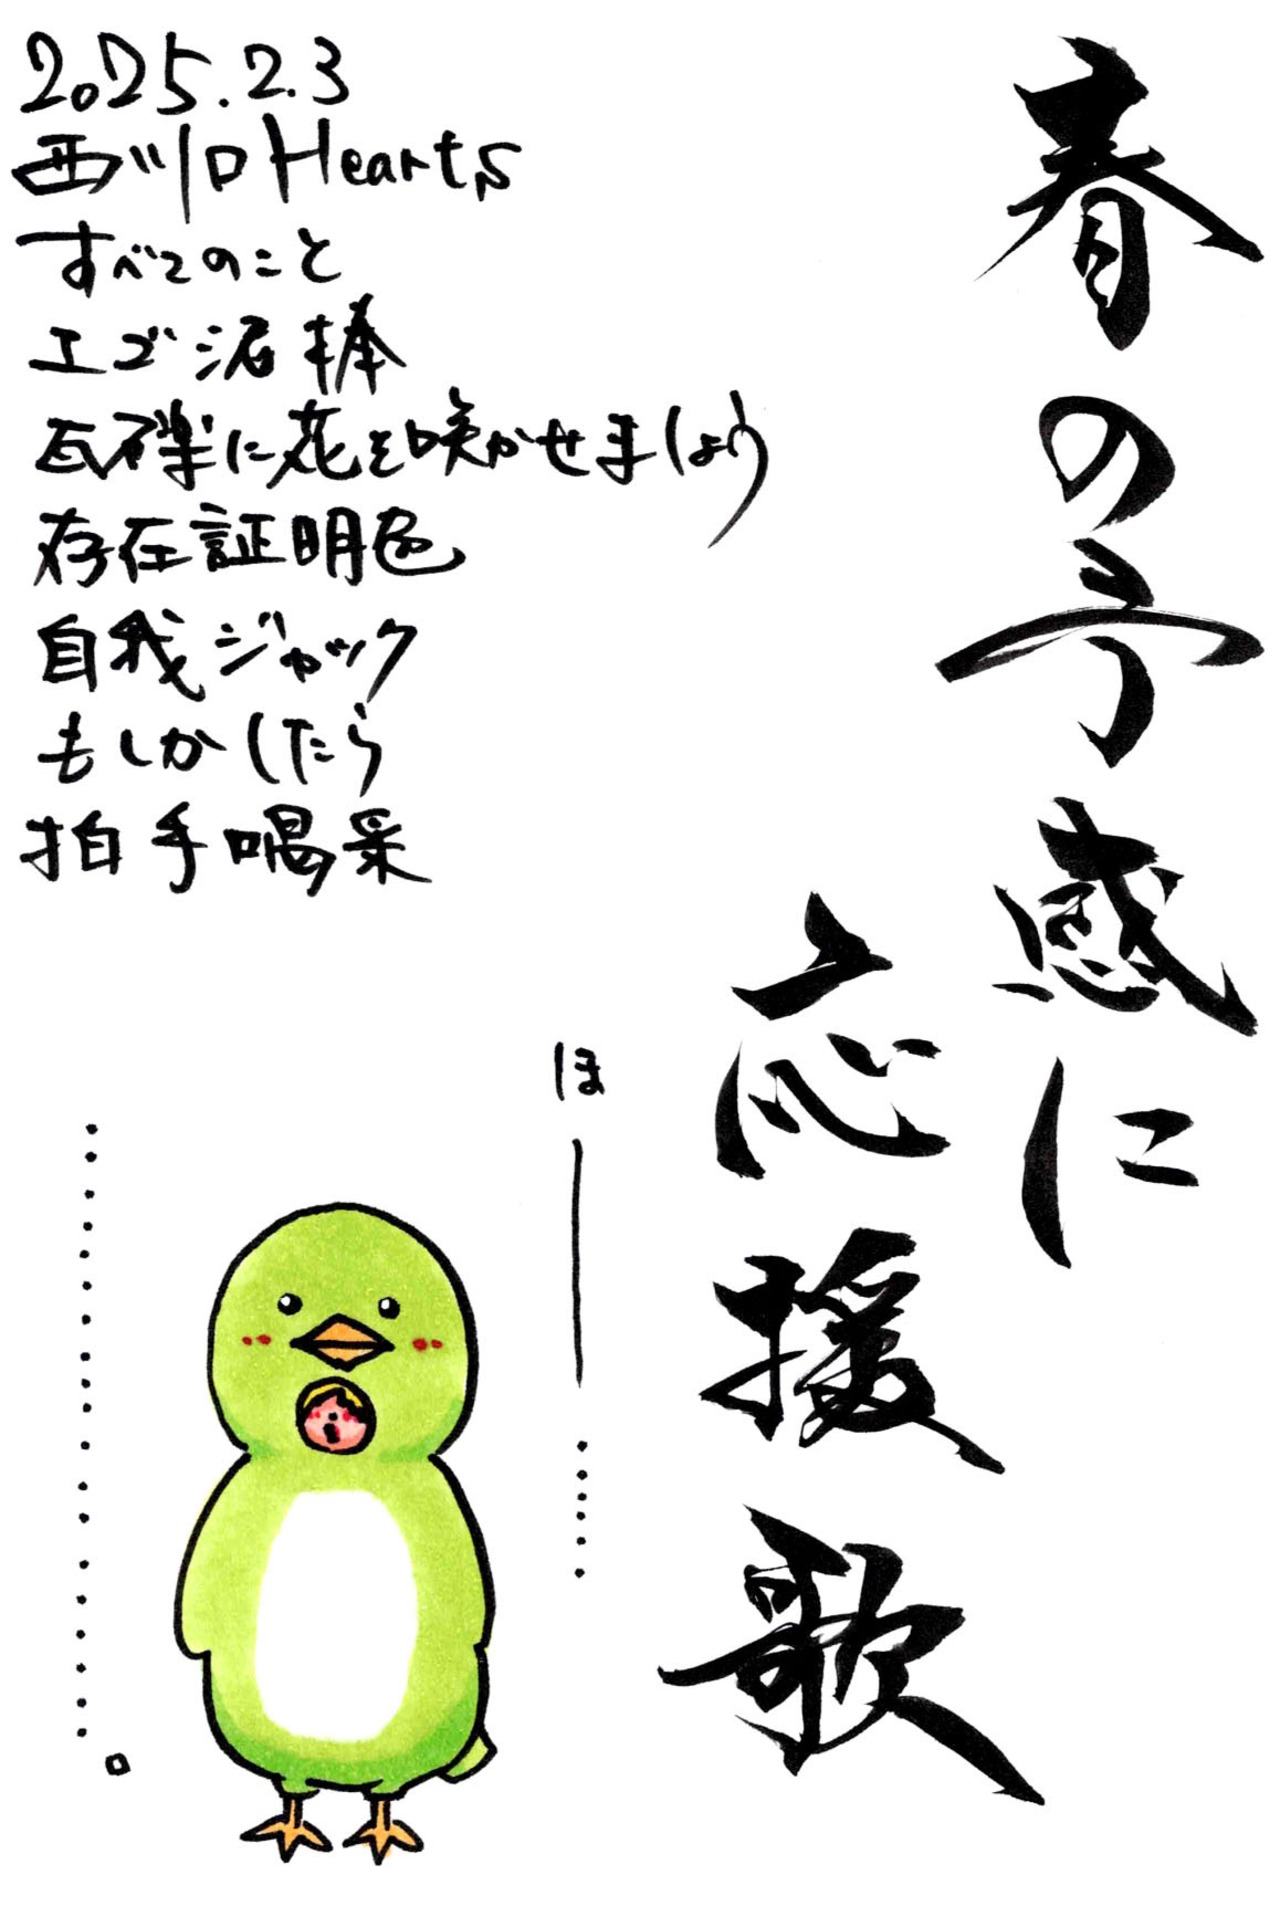 春の予感に
応援歌
2025.2.3
西川口Hearts
すべてのこと
エゴ泥棒
瓦礫に花を咲かせましょう
存在証明色
自我ジャック
もしかしたら
拍手喝采
ほー……
………………。